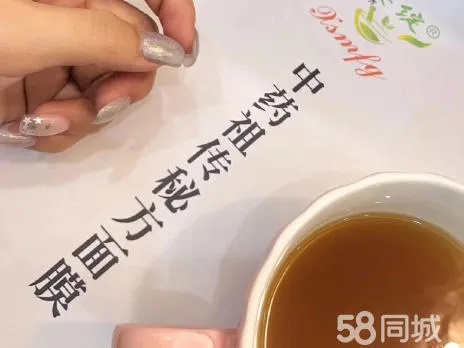 绽®
Dsmfy
中药祖传秘方面膜
58同城